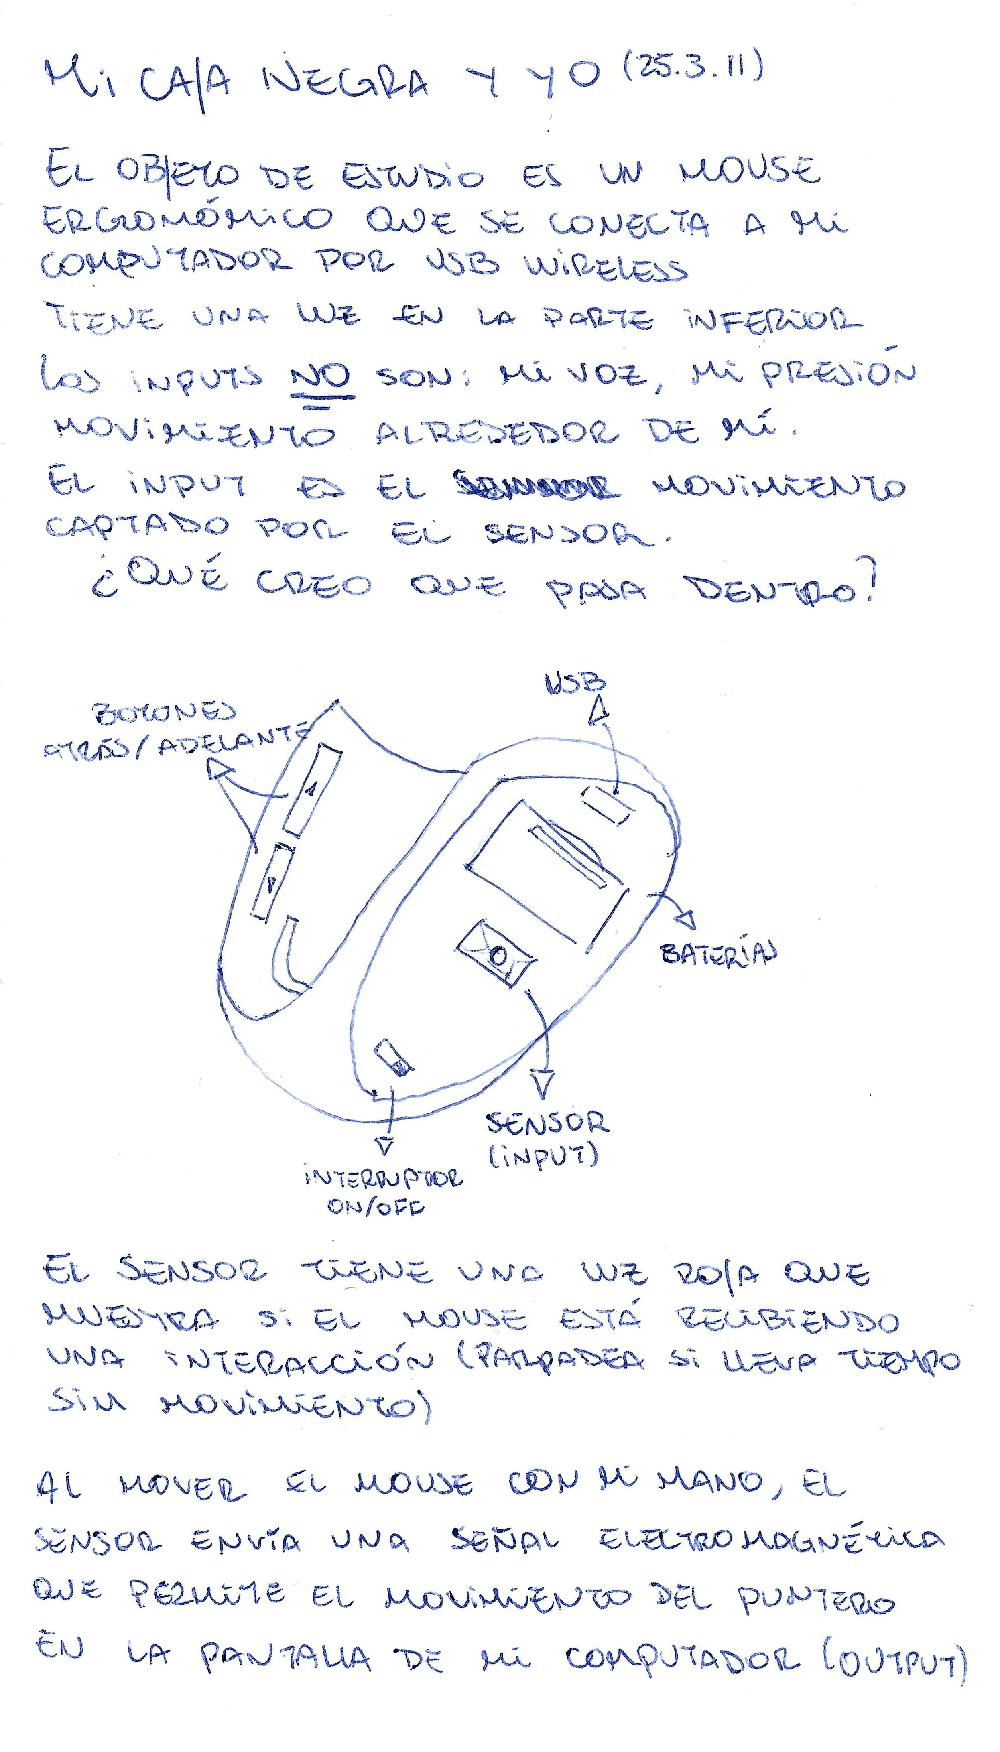 Mi CAJA NEGRA Y YO (25.3.11)
EL OBJETO DE ESTUDiO ES UN MOUSE
ERGONÓMiCO QUE SE CONECTA A Mi
COMPUTADOR POR USB WiRELESS
TIENE UNA LUZ EN LA PARTE iNFERiOR
LOS iNPUTS NO SON: Mi VOZ, Mi PRESiÓN
MOViMiENTO ALREDEDOR DE MÍ.
EL iNPUT ES EL MOViMiENTO
CAPTADO POR EL SENSOR.
¿QUÉ CREO QUE PASA DENTRO?
USB
BOTONES
ATRÁS/ADELANTE
BATERÍAS
SENSOR
(iNPUT)
iNTERRUPTOR
ON/OFF
EL SENSOR TiENE UNA LUZ ROJA QUE
MUESTRA Si EL MOUSE ESTÁ RECiBiENDO
UNA iNTERACCiÓN (PARPADEA Si LLEVA TiEMPO
SiN MOViMiENTO)
AL MOVER EL MOUSE CON Mi MANO, EL
SENSOR ENVÍA UNA SEÑAL ELECTROMAGNÉTiCA
QUE PERMiTE EL MOViMiENTO DEL PUNTERO
EN LA PANTALLA DE Mi COMPUTADOR (OUTPUT)